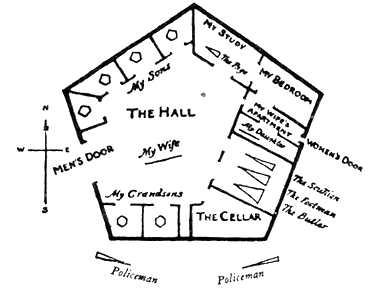 MY STUDY
The Page
MY BEDROOM
My Sons
THE HALL
MY WIFE'S
APARTMENT
My Daughter
WOMEN'S DOOR
N
W
E
S
MEN'S DOOR
My Wife
The Scullion
The Footman
The Butler
My Grandsons
THE CELLAR
Policeman
Policeman